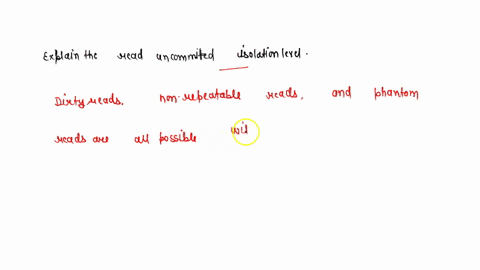 Explain the read uncommited isolation level.
Dirty reads, non-repeatable reads, and phantom
reads are all possible wit